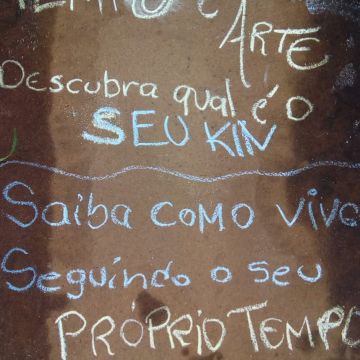 TEMPO É
ARTE
Descubra qual é o
SEU KIN
Saiba como vive
Seguindo o seu
PRÓPRIO TEMPO